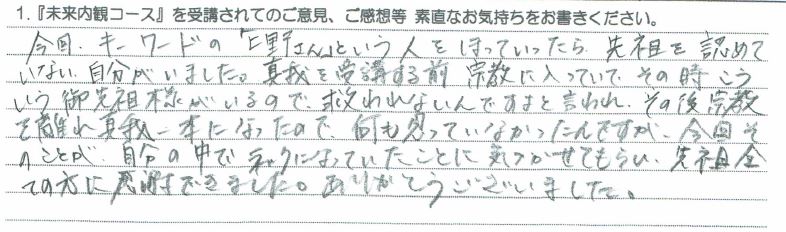 1.『未来内観コース』を受講されてのご意見、ご感想等 素直なお気持ちをお書きください。
今回、キーワードの「上野さん」という人をほっていったら、先祖を認めて
いない自分がいました。真我を受講する前 宗教に入っていて、その時こう
いう御先祖様がいるので、救われないんですよと言われ、その後宗教
を離れ真我一本になったので、何も思っていなかったんですが、今回そ
のことが、自分の中でネックになっていたことに気づかせてもらい、先祖全
ての方に感謝できました。ありがとうございました。